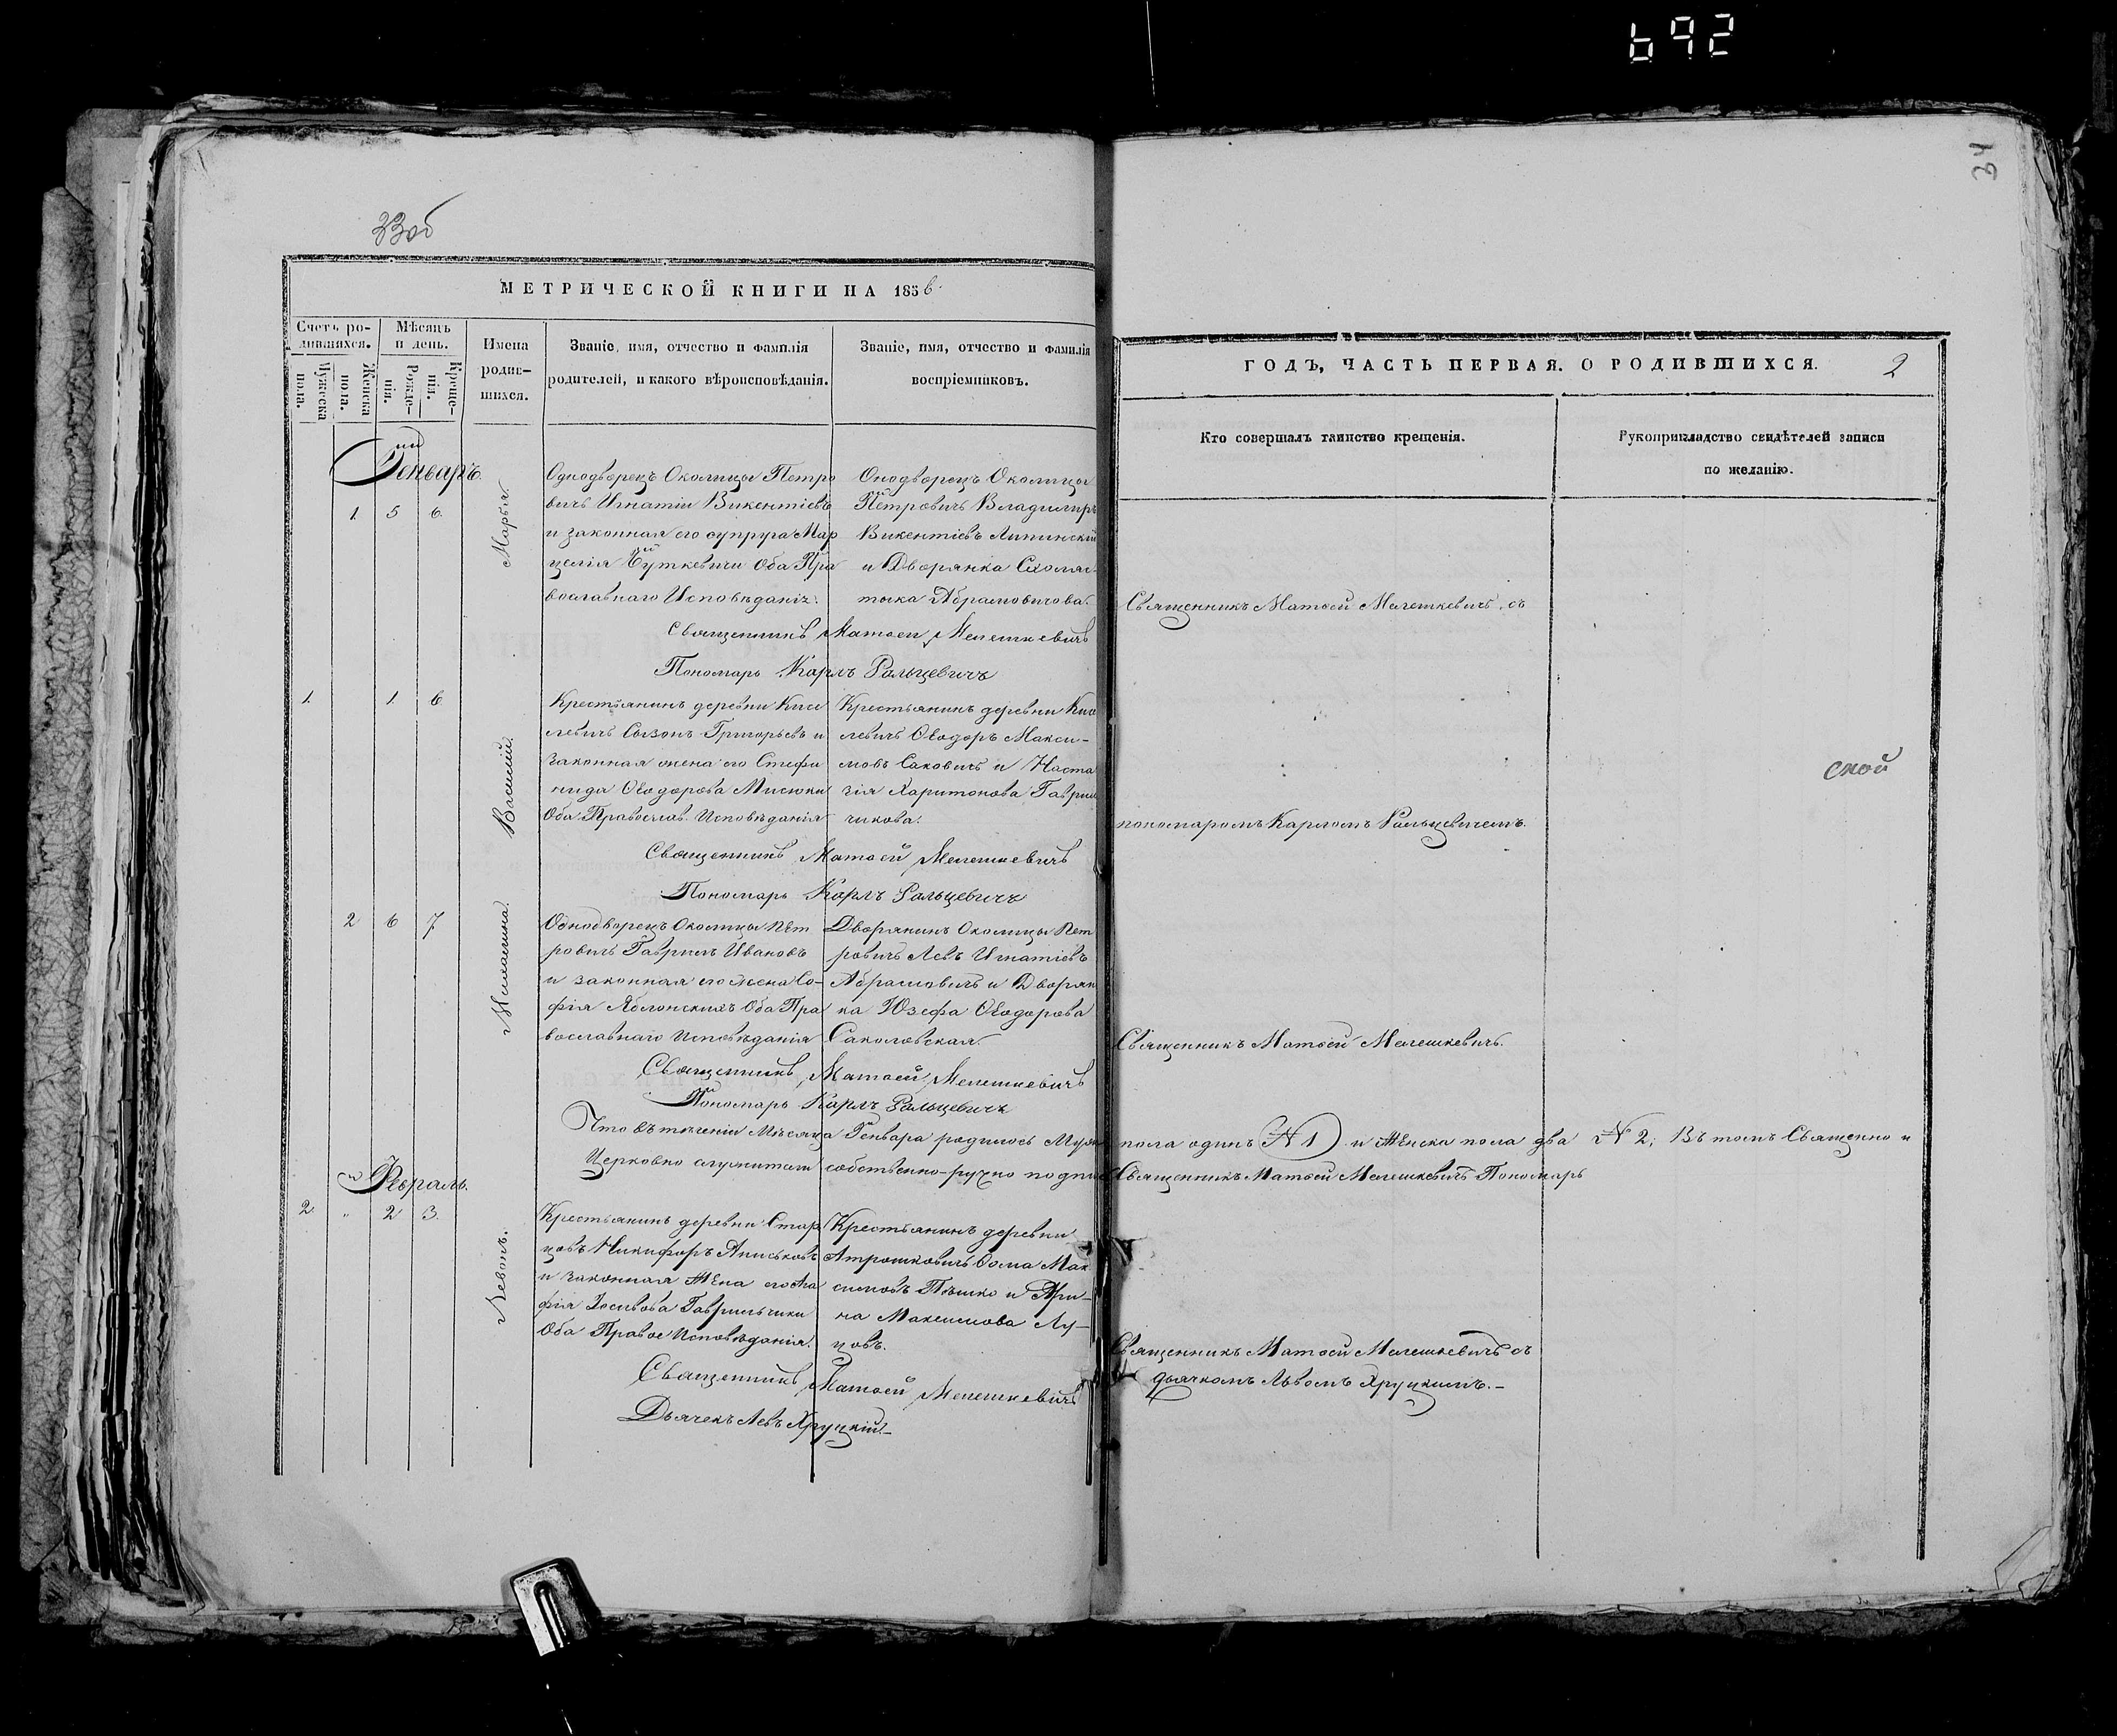 692
34
33об
МЕТРИЧЕСКОЙ КНИГИ НА 1856.
Счетъ ро-
дившихся.
Мужеска
пола.
Женска
пола.
Мѣсяцъ
и день.
Рожде-
нія.
Креще-
нія.
Имена
родив-
шихся.
Званіе, имя, отчество и фамилія
родителей, и какого вѣроисповѣданія.
Званіе, имя, отчество и фамилія
воспріемниковъ.
ГОДЪ, ЧАСТЬ ПЕРВАЯ. О РОДИВШИХСЯ. 2
Кто совершалъ таинство крещенія.
Рукоприкладство свидѣтелей записи
по желанію.
Генварь.
1. 5 6.
Марья.
Однодворецъ Околицы Петро
вичъ Игнатій Викентіевъ
и законная его супруга Мар
целія Буткевичи Оба Пра
вославнаго Исповѣданія.
Онодворецъ Околицы
Петровичъ Владимиръ
Викентіевъ Липинскій
и Дворянка Схолас
тыка Абрамовичова.
Священникъ Матѳей Мелешкевичъ. съ
Священникъ Матѳей Мелешкевичъ
Пономарь Карлъ Рольцевичъ
1. 1. 6
Василій.
Крестьянинъ деревни Кисе
левичъ Сызонъ Григорьевъ и
законная жена его Стефа
нида Ѳеодорова Мисюки
Оба Православ. Исповѣданія
Крестьянинъ деревни Кисе
левичъ Ѳеодоръ Макси-
мовъ Саковичъ и Наста
зія Харитонова Гаврил
чикова.
ской
пономаромъ Карломъ Рольцевичемъ.
Священникъ Матѳей Мелешкевичъ
Пономарь Карлъ Рольцевичъ
2 6 7
Однодворецъ Околицы Пет
ровичъ Гавріилъ Ивановъ
и законная его жена Со-
фія Яблонскихъ Оба Пра
вославнаго Исповѣданія
Дворянинъ Околицы Пет
ровичъ Левъ Игнатіевъ
Абрамовичъ и Дворян
ка Юзефа Ѳеодорова
Саколовская
Священникъ Матѳей Мелешкевичъ.
Священникъ Матѳей Мелешкевичъ
Пономарь Карлъ Рольцевичъ
Что въ теченіи Мѣсяца Генвара родилось Муж пола одинъ N 1) и Женска пола два N 2; Въ томъ Священно и
Церковно служители собственно-ручно подпис Священникъ Матѳей Мелешкевичъ Пономарь
Февраль.
2. " 2 3.
Левонъ.
Крестьянинъ деревни Стар
цовъ Никифоръ Аниськовъ
и законная Жена его Ага
фія Гаврильчики
Оба Правос Исповѣданія.
Крестьянинъ деревни
Атрошковичъ Ѳома Мак
симовъ Пѣшко и Ари-
на Максимова Лу-
цовъ.
Священникъ Матѳей Мелешкевичъ съ
дьячкомъ Львомъ Хруцкимъ.-
Священникъ Матѳей Мелешкевичъ
Дьячекъ Левъ Хруцкій.-